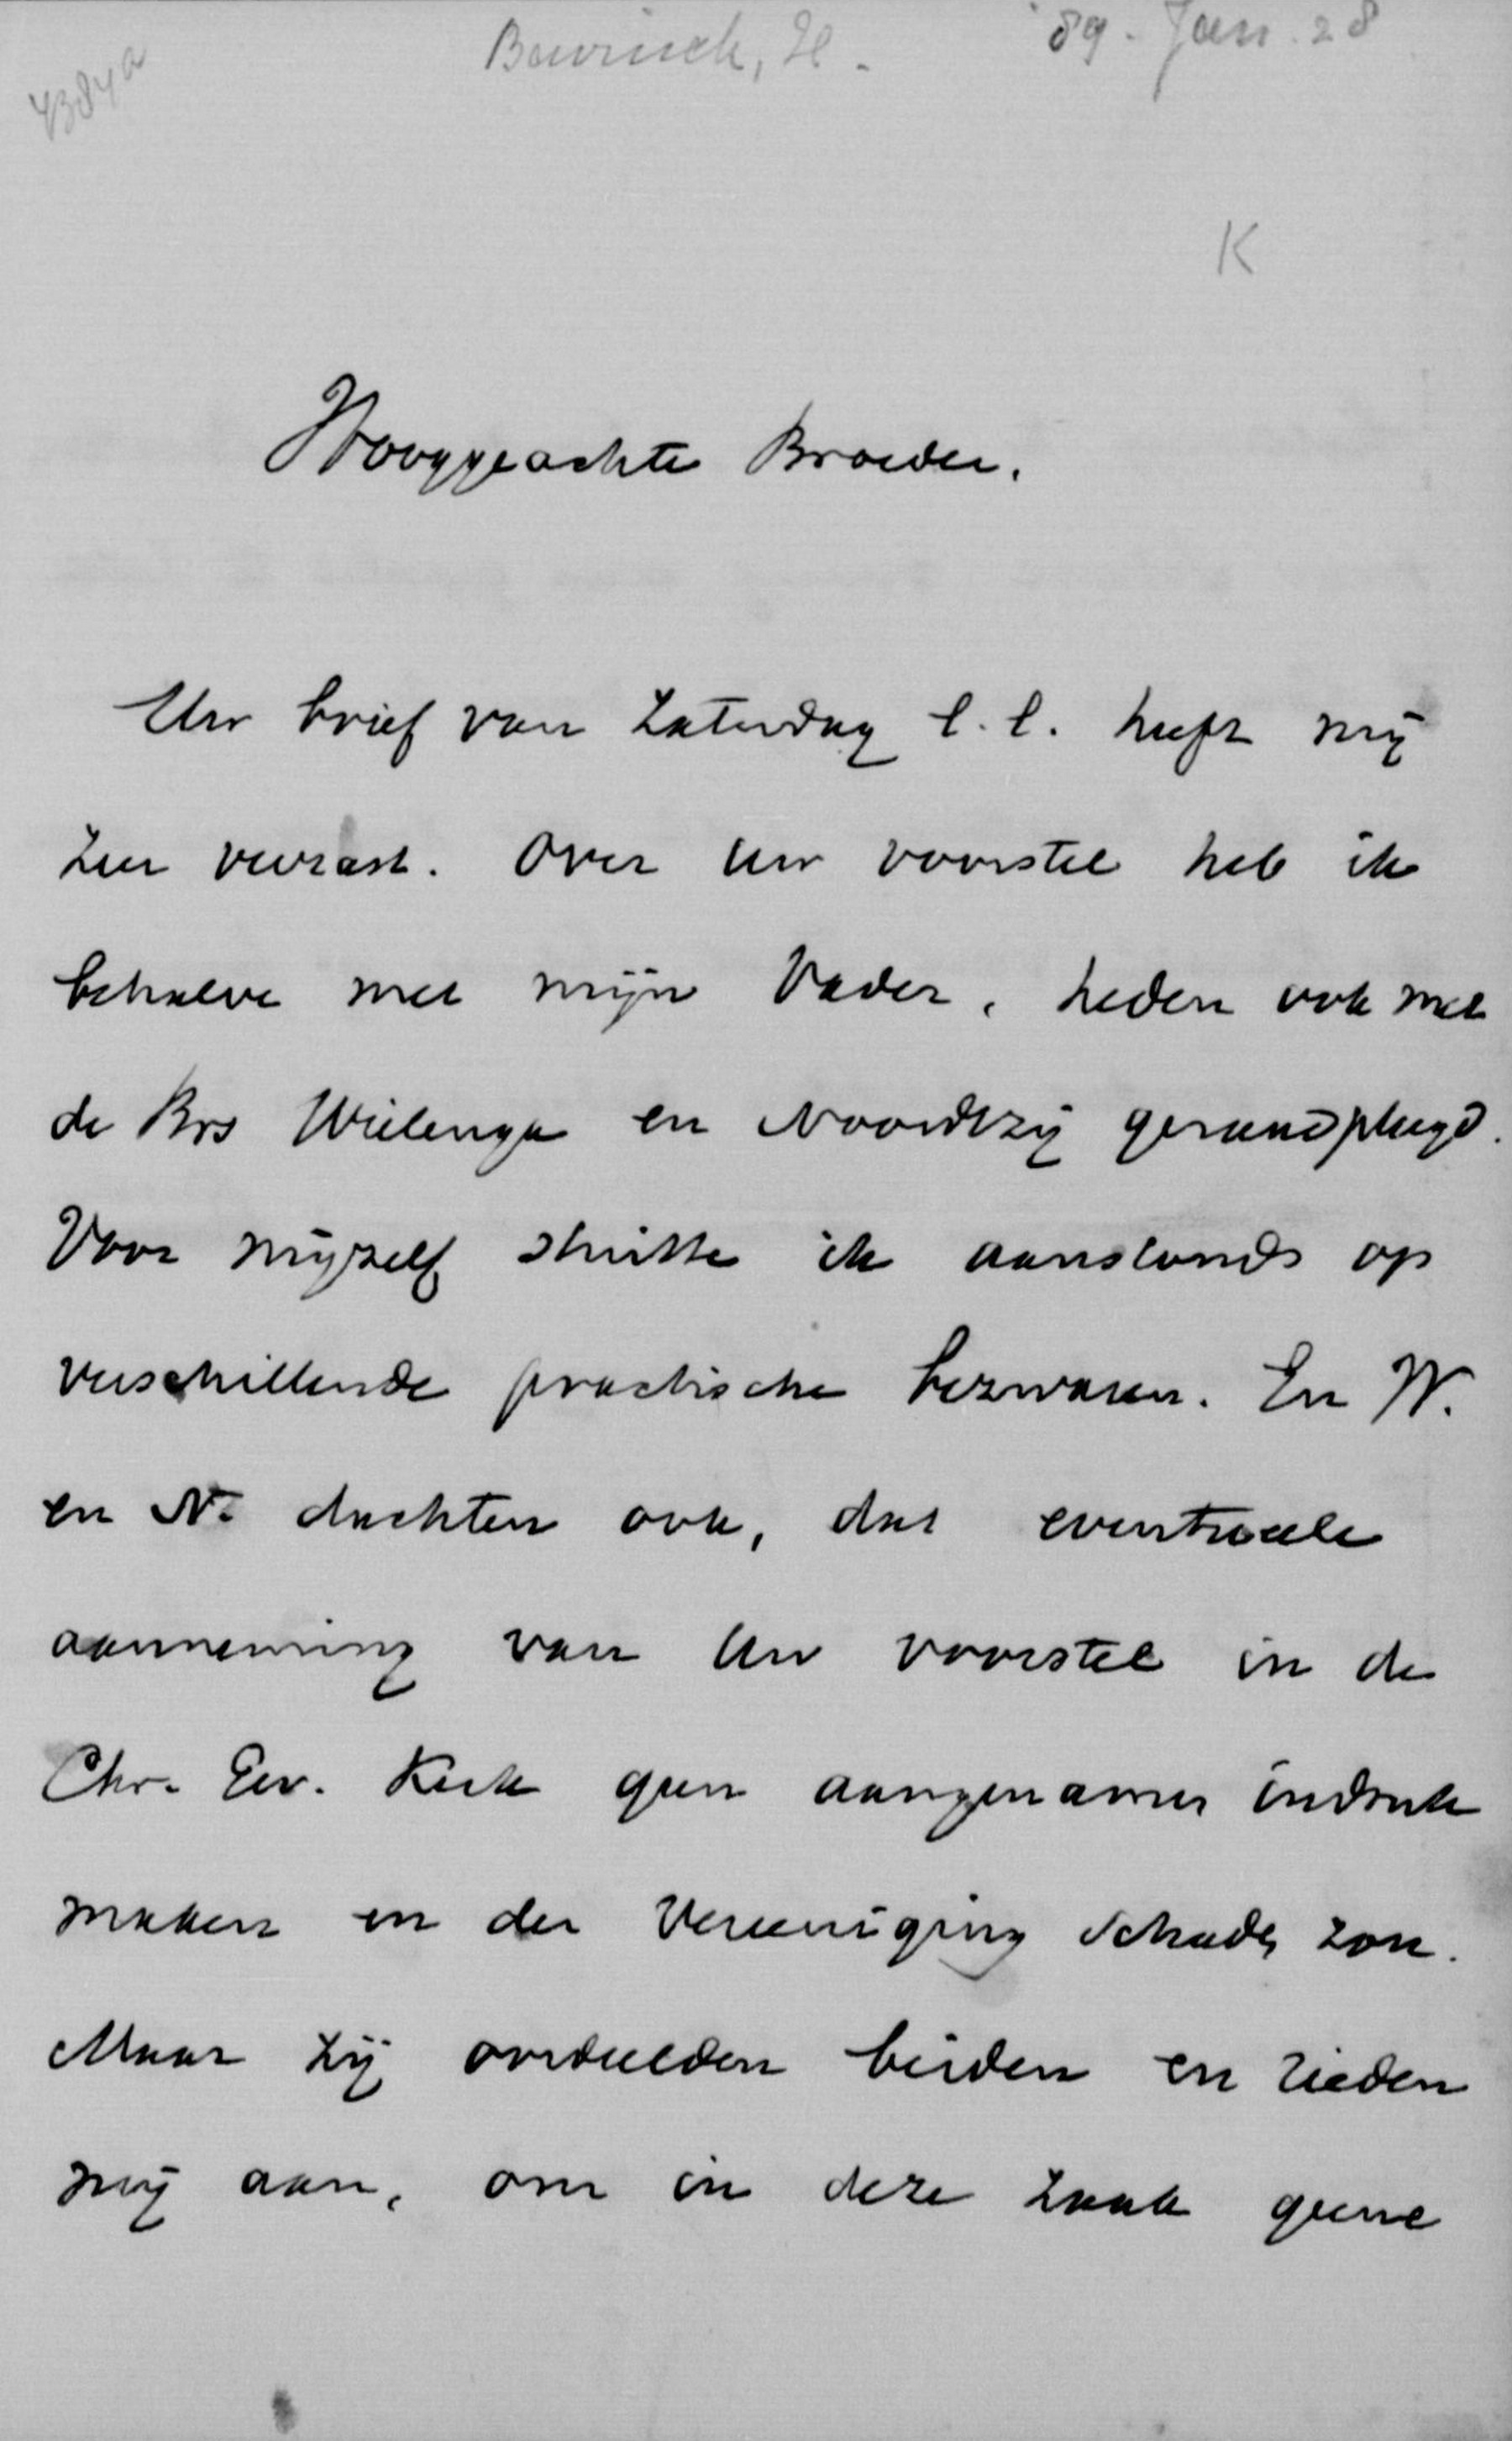 Bavinck, H. '89. Jan. 28
4384a
K
Hooggeachte Broeder.
Uw brief van Zaterdag l.l. heeft mij
zeer verrast. Over Uw voorstel heb ik
behalve met mijn Vader, heden ook met
de Brs Wielenga en Noordtzij geraadpleegd.
Voor mijzelf stuitte ik aanstonds op
verschillende practische bezwaren. En W.
en N. dachten ook, dat eventueele
aanneming van Uw voorstel in de
Chr. Ger. Kerk geen aangenamen indruk
maken en der Vereeniging schaden zou.
Maar zij oordeelden beiden en rieden
mij aan, om in deze zaak geene